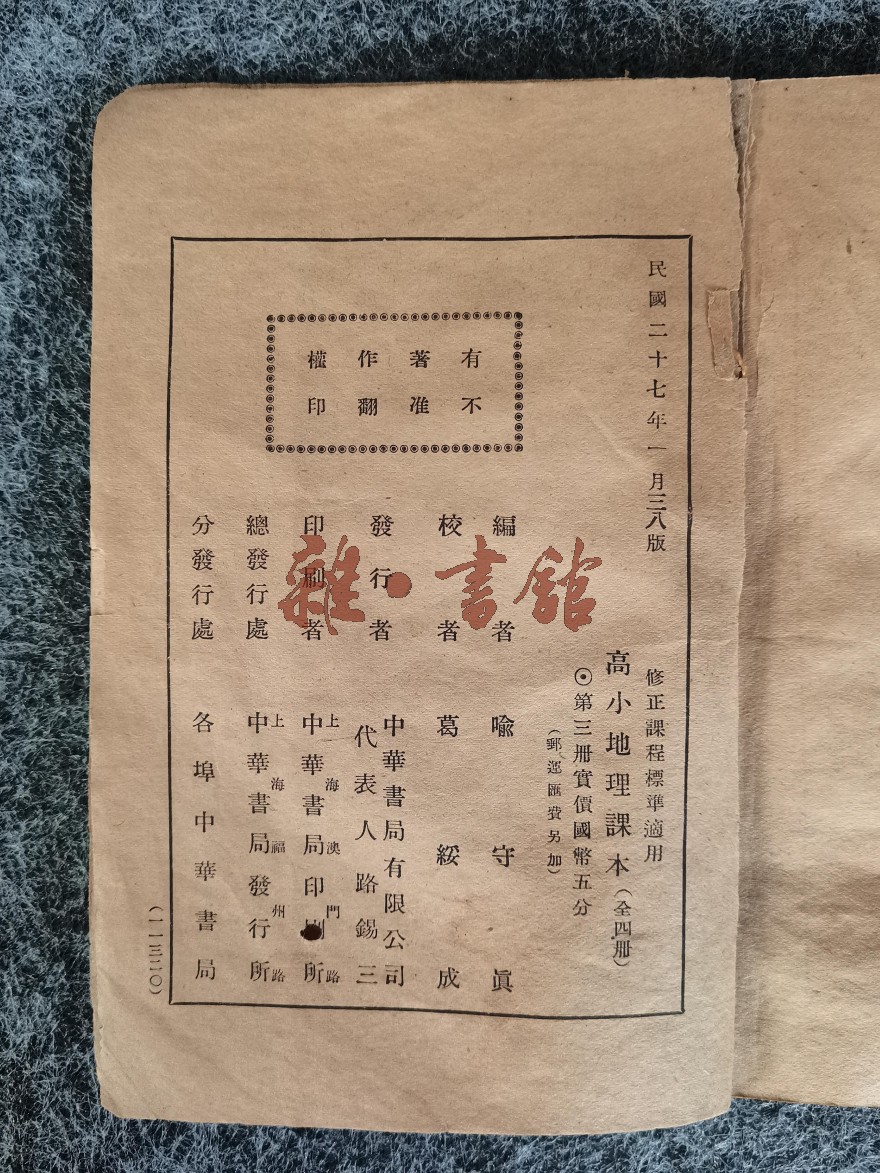 民國二十七年一月三八版
修正課程標準適用
高小地理課本（全四册）
◉第三册實價國幣五分
（郵運匯費另加）
有不
著准
作翻
權印
編者 喩守眞
校者 葛綏成
發行者 中華書局有限公司
代表人路錫三
印刷者 上海澳門路
中華書局印刷所
總發行處 上海福州路
中華書局發行所
分發行處 各埠中華書局
（一一三二〇）
雜·書館